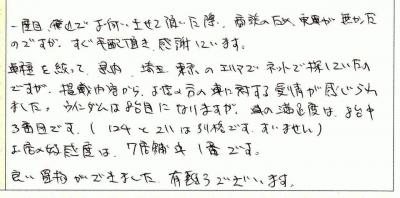 一度目、電話でお伺いさせて頂いた際、商談の為、実車が無かった
のですが、すぐ手配頂き感謝しています。
車種を絞って、県内、埼玉、東京のエリアでネットで探していたの
ですが、掲載内容から、お店の方の車に対する愛情が感じられ
ました。ウィンダムは8台目になりますが、車の満足度は、8台中
3番目です。(124と211は別格です。すいません)
お店の好感度は、7店舗中1番です。
良い買物ができました。有難うございます。